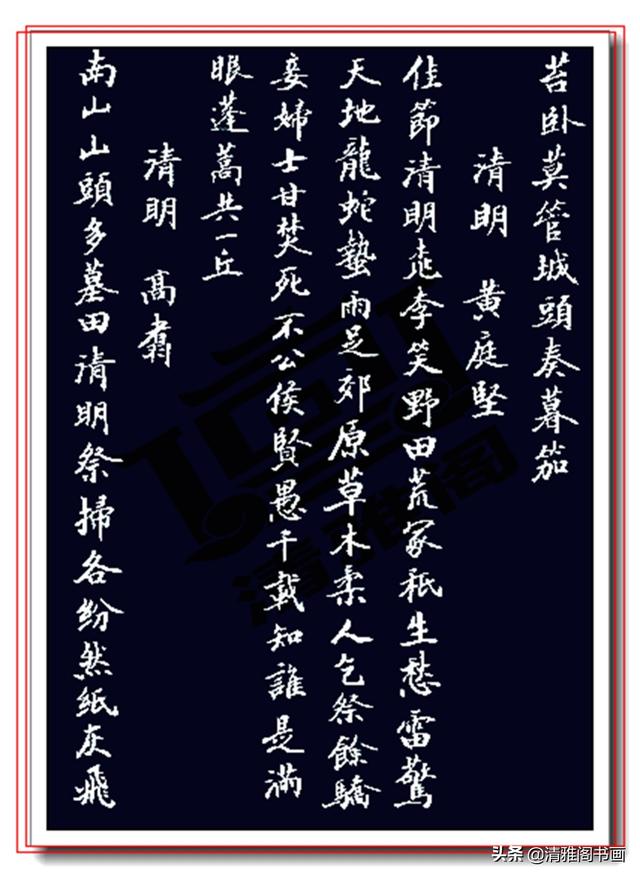 苔卧莫管城頭奏暮笳
清明 黄庭堅
佳節清明桃李笑野田荒冢秖生愁雷驚
天地龍蛇蟄雨足郊原草木柔人乞祭餘驕
妾婦士甘焚死不公侯賢愚千載知誰是滿
眼蓬蒿共一丘
清明 高翥
南山山頭多墓田清明祭掃各紛然紙灰飛
清雅阁
头条 @清雅阁书画